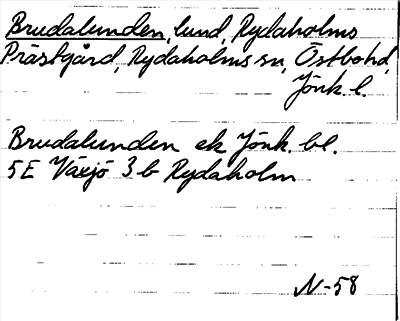 Brudalunden, lund, Rydaholms
Prästgård, Rydaholms sn, Östbo hd,
Jönk. l.
Brudalunden ek Jönk. bl.
5E Växjö 3b Rydaholm
N-58